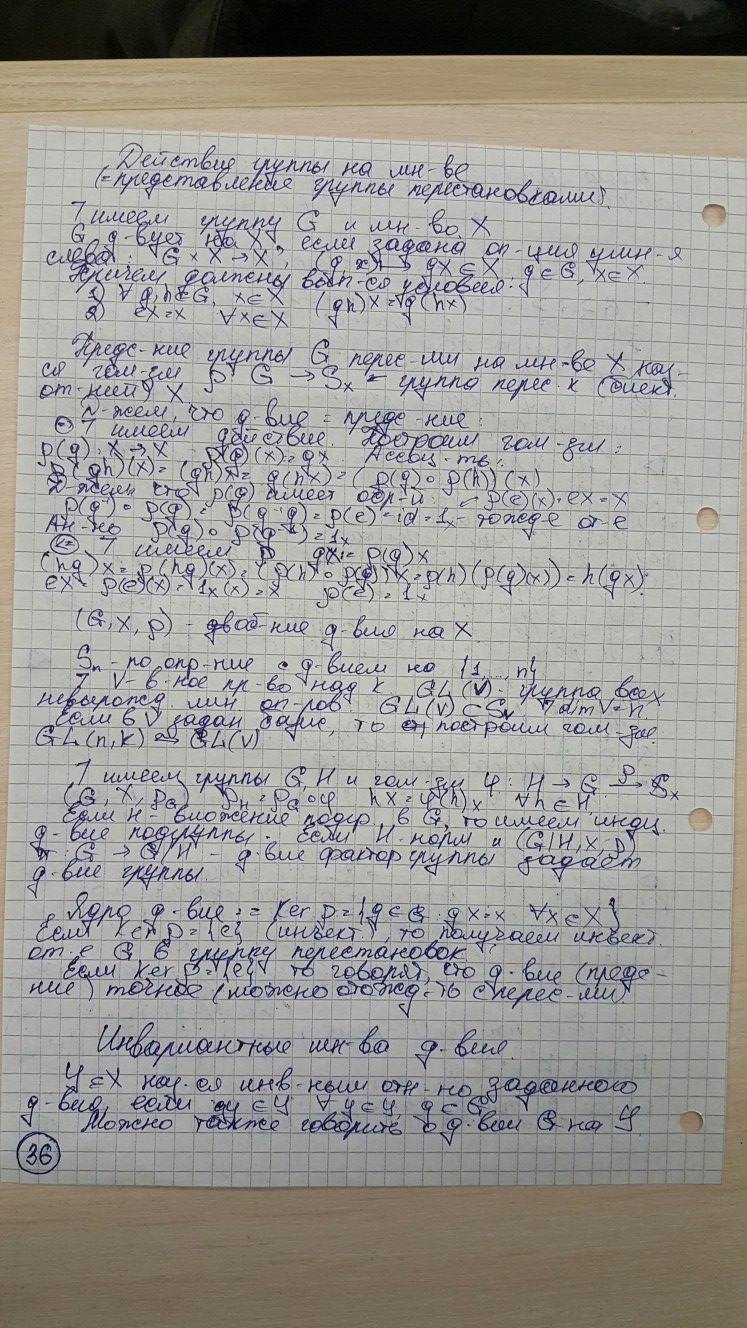 Действие группы на мн-ве
(=представление группы перестановками).
7 имеем группу G и мн-во X
G д-вует на X, если задана оп-ция умн-я
слева: G × X → X, (g x) ↦ gx ∈ X, g ∈ G, x ∈ X.
Причем должны вып-ся условия:
1) ∀ g, h ∈ G, x ∈ X (gh)x = g(hx)
2) ex = x ∀x ∈ X
Предс-ние группы G перес-ми на мн-ве X наз-
ся гом-зм ρ G → Sx - группа перес-к (биект.
от-ний) X
Д-жем, что д-вие = предс-ние:
7 имеем действие. Построим гом-зм:
ρ(g): X → X ρ(g)(x) = gx. Ассоц-ть:
ρ(gh)(x) = (gh)x = g(hx) = (ρ(g) ∘ ρ(h))(x)
Д-жем что ρ(g) имеет обр-й. ρ(e)(x) = ex = x
ρ(g⁻¹) ∘ ρ(g) = ρ(g⁻¹g) = ρ(e) = id = 1x - тожд-е от-е
Ан-но ρ(g) ∘ ρ(g⁻¹) = 1x
⇐ 7 имеем ρ gx = ρ(g)x
(hg)x = ρ(hg)(x) = (ρ(h) ∘ ρ(g))x = ρ(h)(ρ(g)(x)) = h(gx).
ex = ρ(e)(x) = 1x(x) = x ρ(e) = 1x
(G, X, ρ) - д-вия на X.
Sn - по опр-ние с д-вием на {1,...,n}
7 V - в-ное пр-во над k GL(V) - группа всех
невырожд. лин. оп-ров GL(V) ⊂ Sv 7 dim V = n.
Если в V задан базис, то построим гом-зм.
GL(n,k) GL(V)
7 имеем группы G, H и гом-зм φ: H → G →ρ Sx
(G, X, ρG) ρH = ρG ∘ φ hx = φ(h)x ∀h ∈ H
Если H - вложение подгр. в G, то имеем индуц.
д-вие подгруппы. Если H норм и (G/H, X, ρ)
π: G → G/H - д-вие фактор группы задает
д-вие группы.
Ядро д-вие := Ker ρ = {g ∈ G: gx = x ∀x ∈ X}
Если Ker ρ = {e} (инъект), то получаем инъект.
от-е G в группу перестановок
Если Ker ρ = {e} то говорят, что д-вие (предс-
ние) точное (можно отожд-ть с перес-ми)
Инвариантные мн-ва д-вия.
Y ⊆ X наз-ся инв-ным отн-но заданного
д-вия, если gy ∈ Y ∀y ∈ Y, g ∈ G
Можно также говорить о д-вии G на Y
36